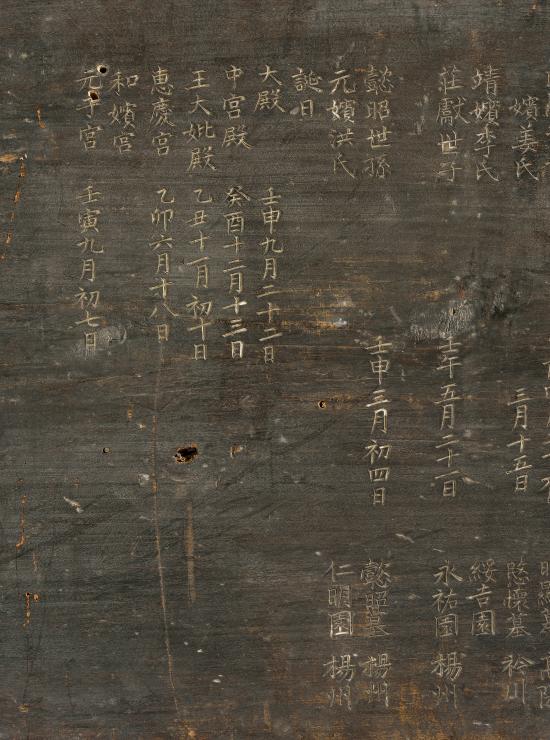 嬪姜氏 三月十五日 愍懷墓 衿川
靖嬪李氏 綏吉園
莊獻世子 壬午五月二十一日 永祐園 楊州
懿昭世孫 壬申三月初四日 懿昭墓 楊州
元嬪洪氏 仁明園 楊州
誕日
大殿 壬申九月二十二日
中宮殿 癸酉十二月十三日
王大妣殿 乙丑十一月初十日
惠慶宮 乙卯六月十八日
和嬪宮
元子宮 壬寅九月初七日